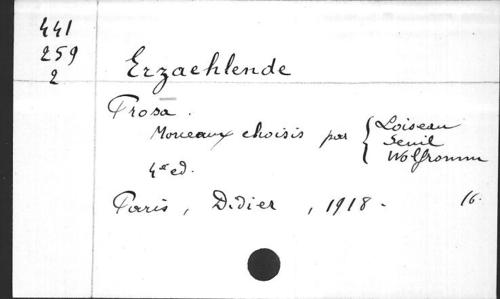 441
259
2
Erzaehlende
Prosa.
Morceaux choisis par { Loiseau
Seuil
Wolfromm
4e ed.
Paris, Didier, 1918 - 16.